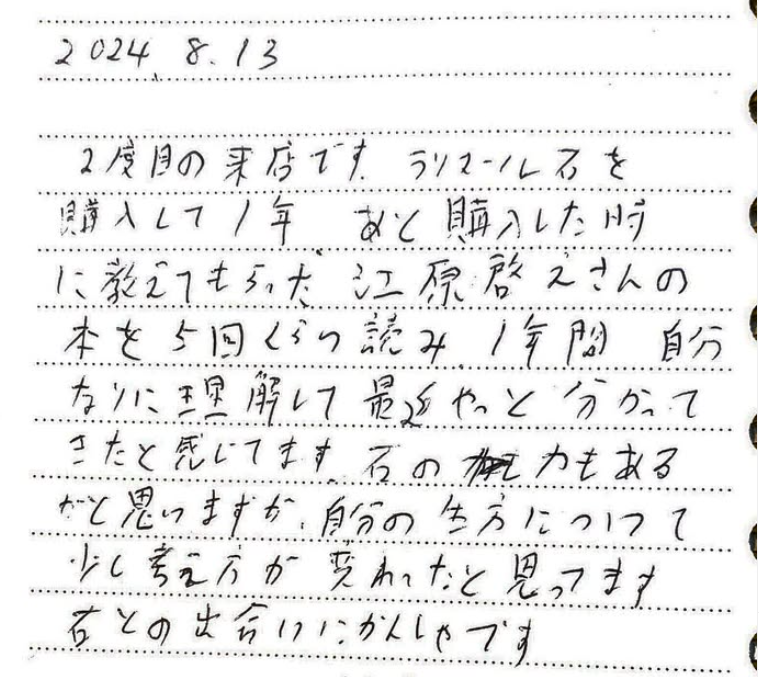 2024.8.13
2度目の来店です ラリマール石を
購入して1年 あと購入した時
に教えてもらった 江原啓之さんの
本を5回くらい読み、1年間 自分
なりに理解して最近やっと分かって
きたと感じてます、石の力もある
かと思いますが、自分の生方について
少し考え方が変わったと思ってます
石との出合いにかんしゃです